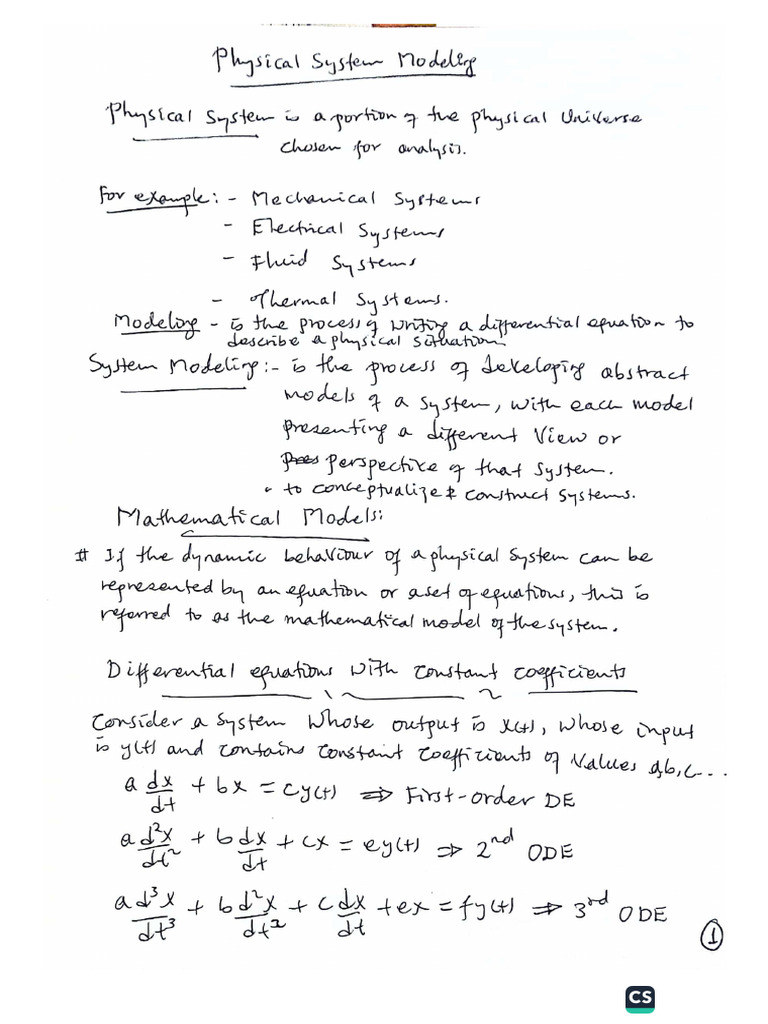 Physical System Modeling
Physical System is a portion of the physical Universe
chosen for analysis.
For example:- Mechanical Systems
- Electrical Systems
- Fluid Systems
- Thermal Systems.
Modeling - is the process of writing a differential equation to
describe a physical situation.
System Modeling:- is the process of developing abstract
models of a system, with each model
presenting a different view or
pres perspective of that system.
• to conceptualize & construct systems.
Mathematical Models:
# If the dynamic behaviour of a physical system can be
represented by an equation or a set of equations, this is
referred to as the mathematical model of the system.
Differential equations with constant coefficients
Consider a system whose output is x(t), whose input
is y(t) and contains constant coefficients of values a,b,c...
a dx/dt + bx = cy(t) ⇒ First-order DE
a d²x/dt² + b dx/dt + cx = ey(t) ⇒ 2nd ODE
a d³x/dt³ + b d²x/dt² + c dx/dt + ex = fy(t) ⇒ 3rd ODE
1
CS